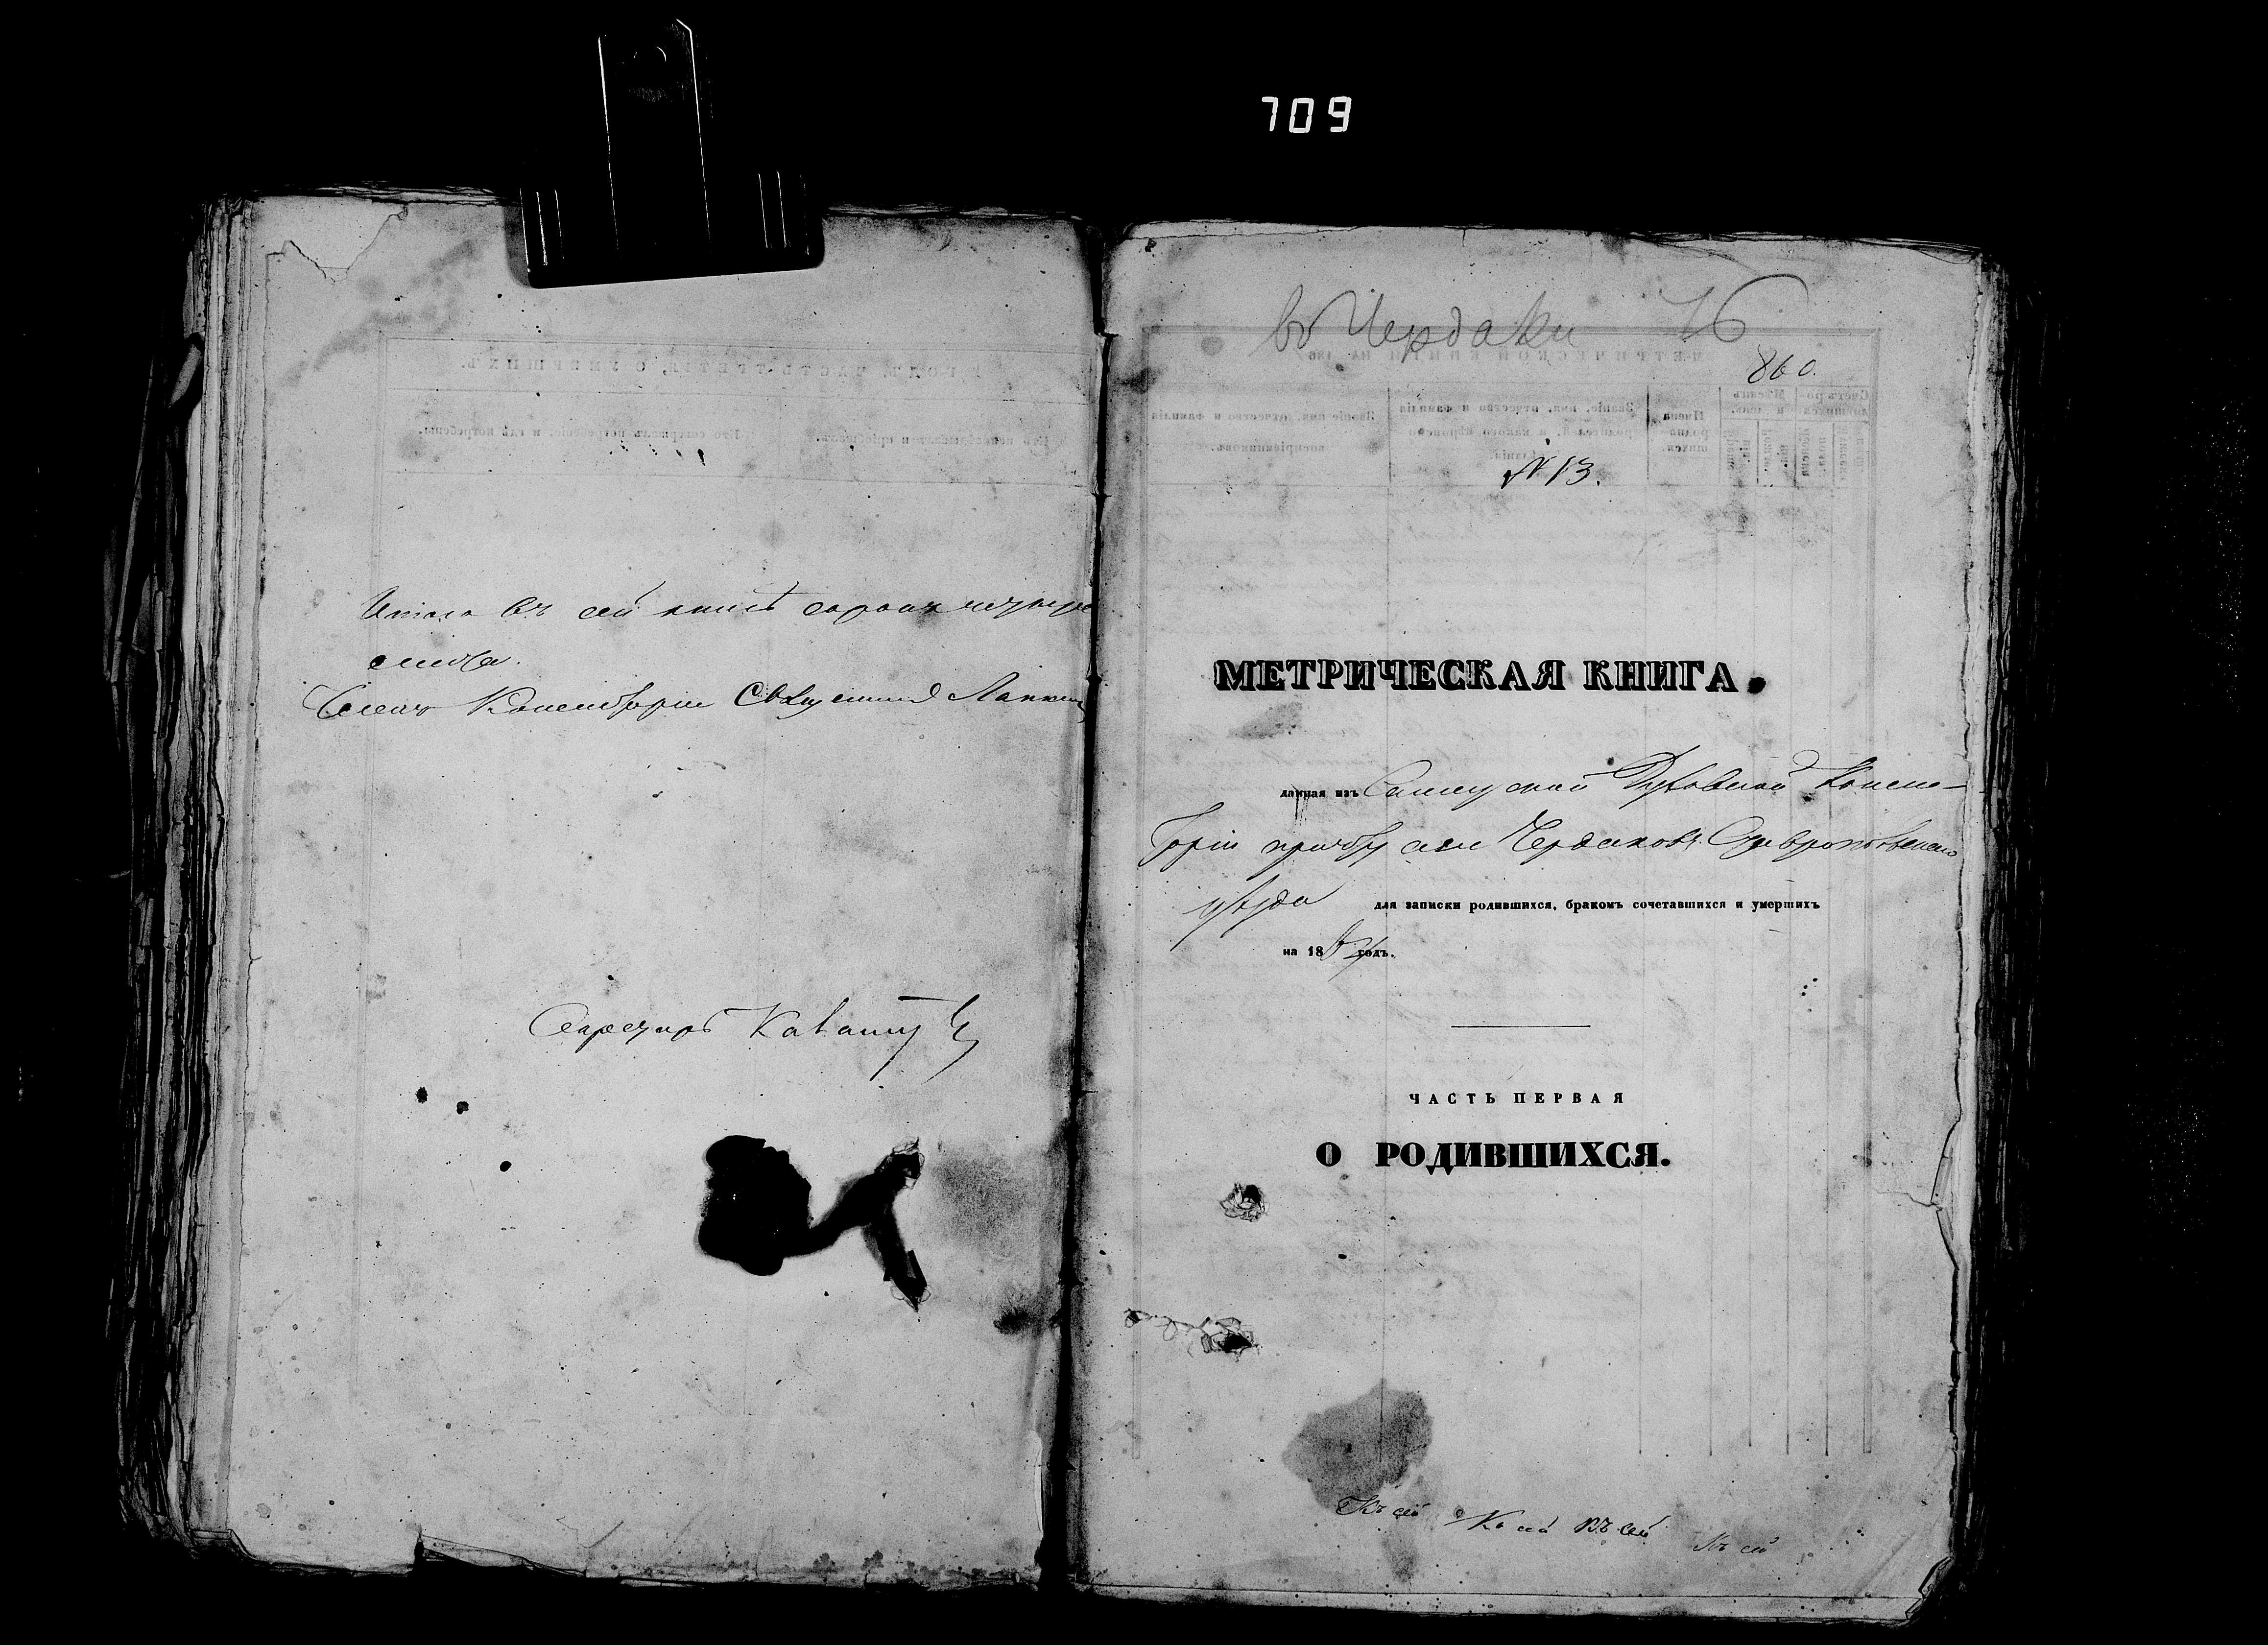 709
Итого въ сей книгѣ сорокъ четыре
листа.
Членъ Консисторіи Священникъ
Секретарь
въ Чердаки 16
860.
N 13.
МЕТРИЧЕСКАЯ КНИГА.
данная изъ Самарской Духовной Конси-
сторіи причту села Чердаковъ Ставропольскаго
уѣзда для записки родившихся, бракомъ сочетавшихся и умершихъ
на 18 годъ.
ЧАСТЬ ПЕРВАЯ
О РОДИВШИХСЯ.
Къ сей Къ сей Къ сей Къ сей